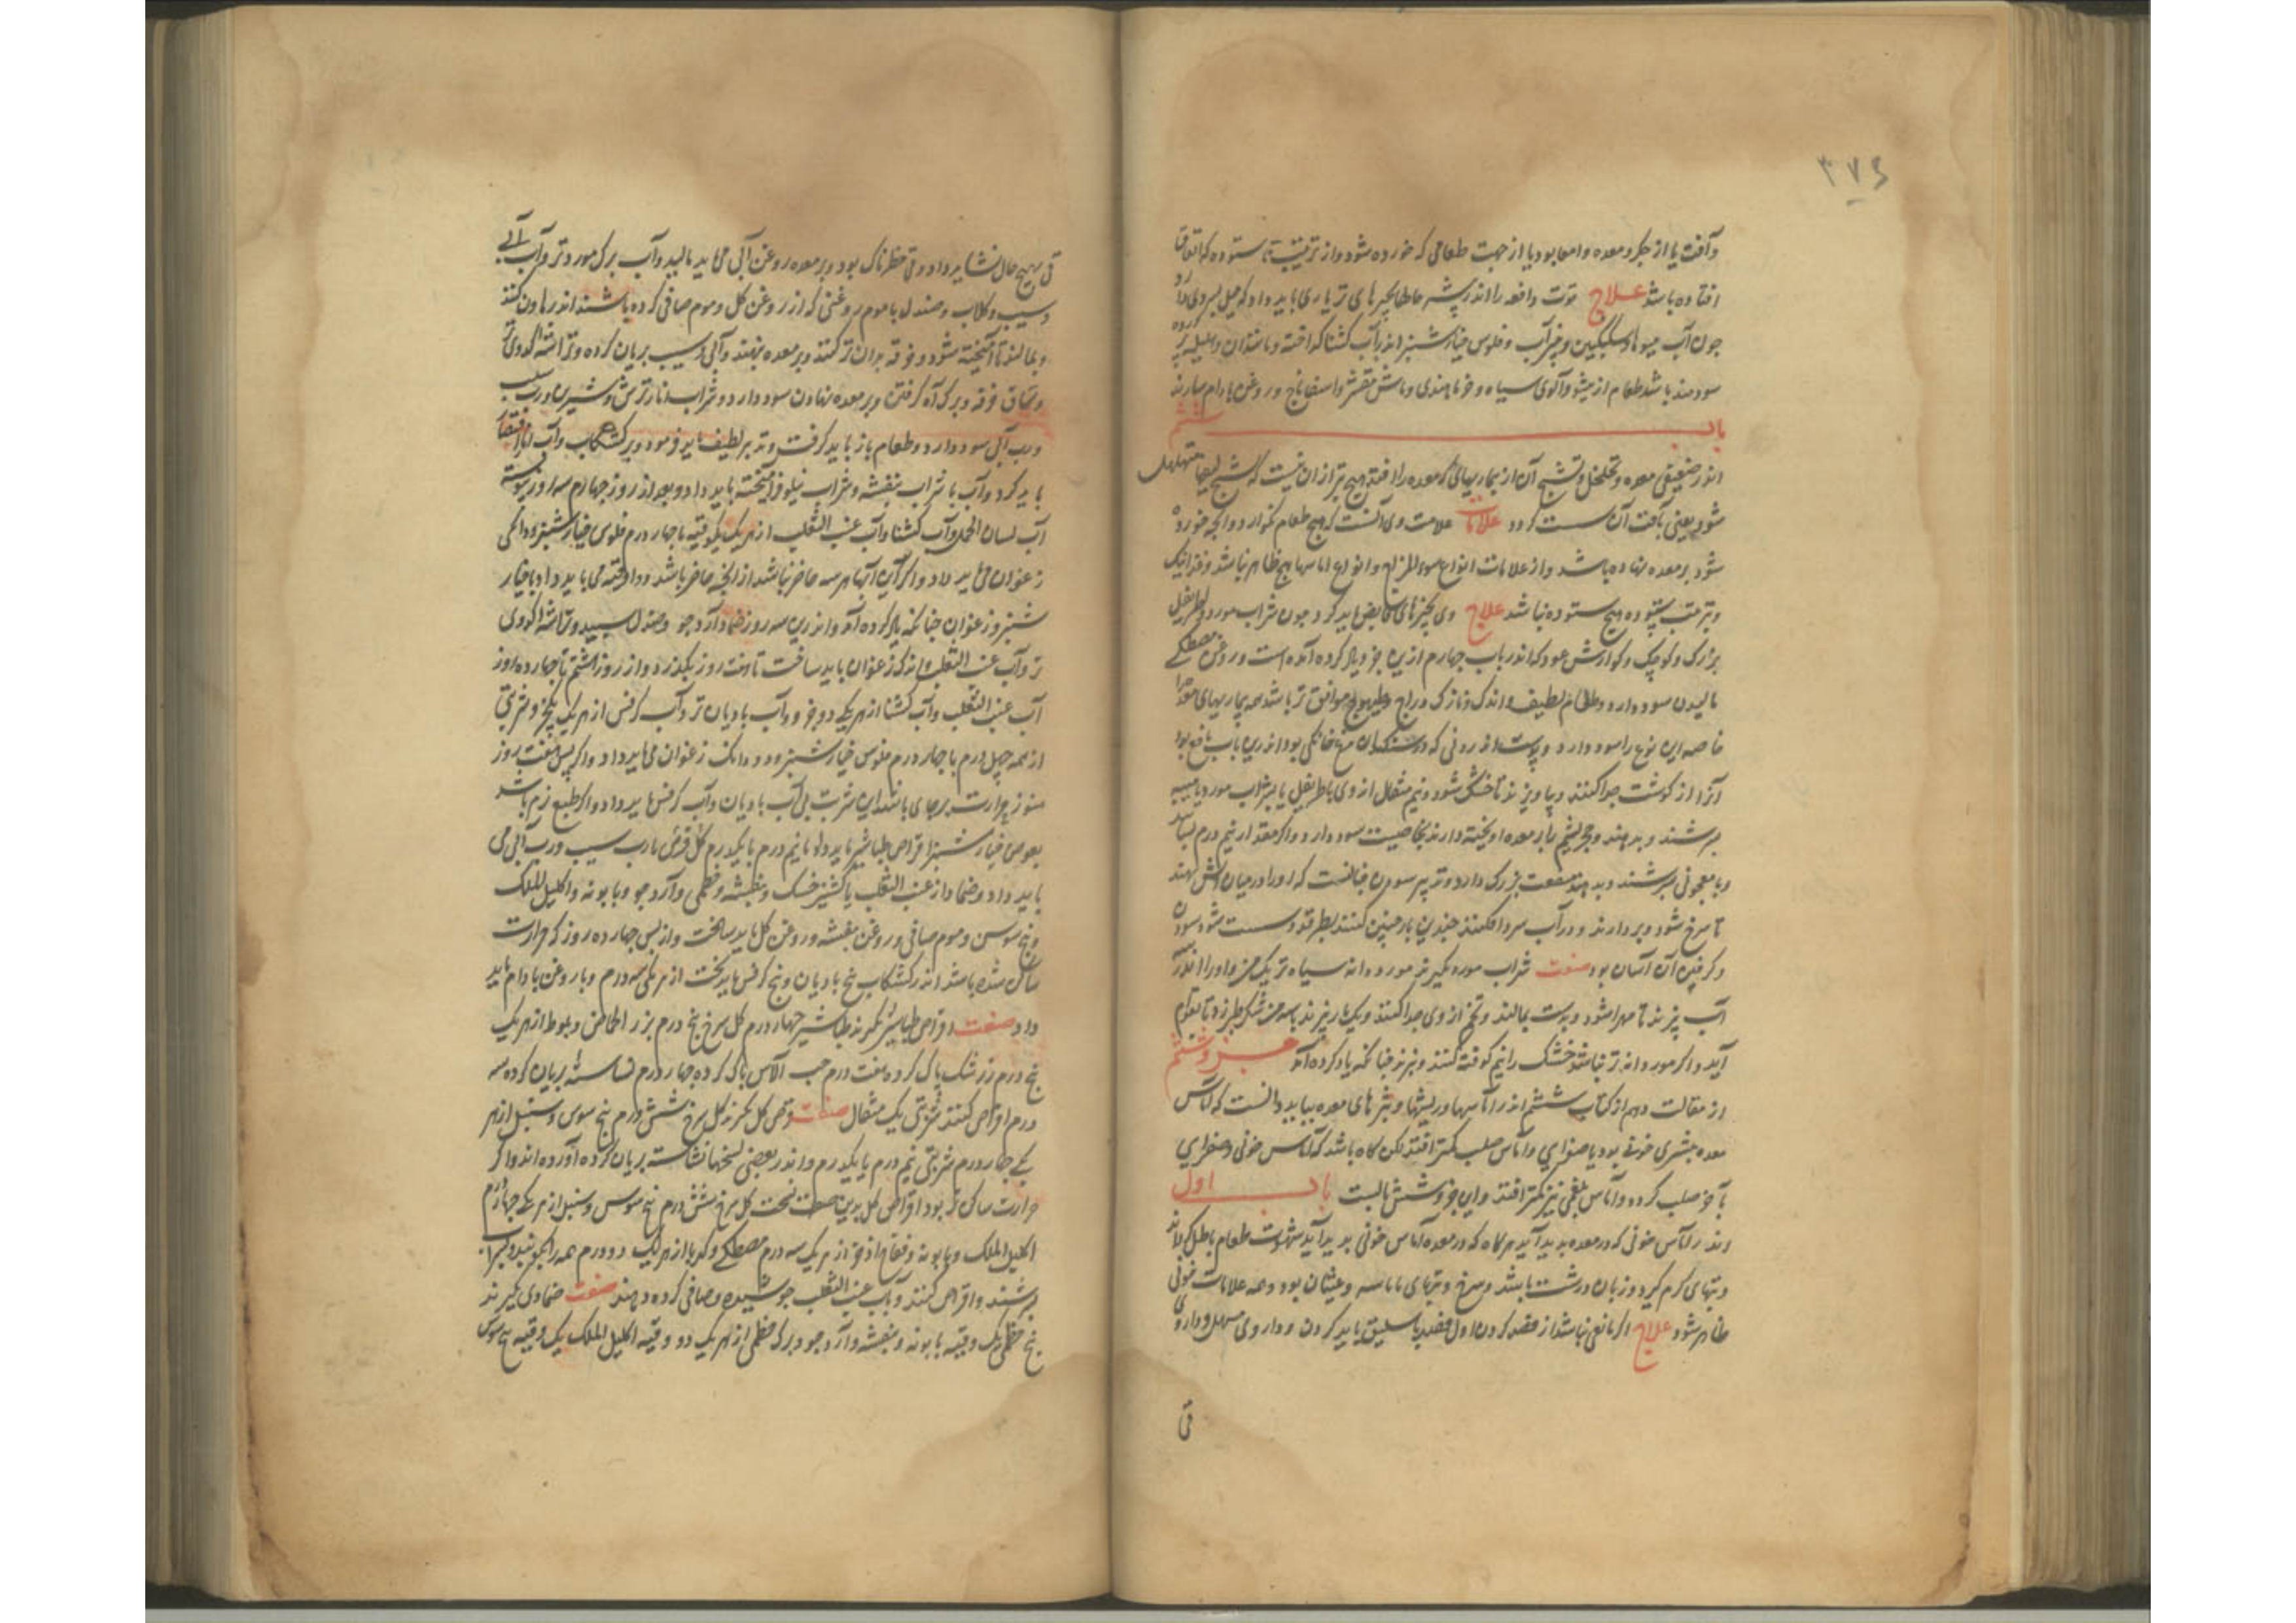 ۳۷۶
وآفت یا از جگر و معده و امعا بود یا از جهت طعامی که خورده شود و از ترتیب ناستوده که اتفاق
افتاده باشد علاج قوت دافعه را اندر بیشتر حالها بچیزهای تر یاری باید داد که میل بسردی دارد
چون آب میوها و سکنگبین و خیار شنبر اندر آب کشنا گداخته و مانند آن
سودمند باشد طعام از میشو و آلوی سیاه و خرما هندی و ماش مقشر و اسفاناخ و روغن بادام سازند
باب ششم
اندر ضعیفی معده و تخلخل و تشبح آن از بیماریهای که معده را افتد هیچ بتر از آن نیست که شبح لیفها متهلهل
شود یعنی بافت آن سست گردد علامات علامت وی آنست که هیچ طعام نگوارد و آنچه خورده
شود بر معده نهاده باشد و از علامات انواع سوء المزاج و انواع اماسها هیچ ظاهر نباشد
و ترتیب ستوده هیچ ستوده نباشد علاج وی بچیزهای قابض باید کرد چون شراب مورد و اطریفل
بزرگ و کوچک و گوارش عود که اندر باب چهارم ازین جزو یاد کرده آمده است و روغن مصطکی
مالیدن سود دارد و طعام لطیف و اندک و نازک دراج و طیهوج موافق تر باشد همه بیماریهای معده را
خاصه این نوع را سود دارد و پوست اندرونی که در سنگدان مرغ خانگی بود اندرین باب نافع بود
آنرا از گوشت جدا کنند و بیاویزند تا خشک شود و نیم مثقال از وی با اطریفل یا بشراب مورد یا میبه
بسرشند و بدهند و حجر یشم را بر معده آویخته دارند بخاصیت سود دارد و اگر مقدار نیم درم بسایند
و با معجونی بسرشند و بدهند منفعت بزرگ دارد و تدبیر سودن چنانست که او را در میان آتش نهند
تا سرخ شود و بردارند و در آب سرد افکنند چندین بار چنین کنند بطرقد و سست شود سودن
و کوفتن آن آسان بود صفت شراب مورد بگیرند مورد دانه سیاه تر یک من و او را اندر سه
آب بپزند تا مهرا شود و بدست بمالند و تخم از وی جدا کنند و یکبار بپزند با سه من شکر طبرزد تا بقوام
آید و اگر مورد دانه تر نباشد خشک را نیم کوفته کنند و بپزند چنانکه یاد کرده آمد جزو ششم
از مقالت دهم از کتاب ششم اندر آماسها و ریشها و بثرهای معده بباید دانست که آماس
معده بیشتری خونی بود یا صفرایی و آماس صلب کمتر افتد لکن گاه باشد که آماس خونی و صفرایی
بآخر صلب گردد و آماس بلغمی نیز کمتر افتد و این جزو شش بابست باب اول
اندر آماس خونی که در معده پدید آید هر گاه که در معده آماس خونی پدید آید شهوت طعام باطل گرداند
و تبهای گرم گیرد و زبان درشت باشد و سرخ و عطشان بود و همه علامات خونی
ظاهر شود علاج اگر مانعی نباشد از فصد کردن اول فصد باسلیق باید کردن و داروی مسهل و داروی
قی
قی بهیچ حال نشاید داد و قی خطرناک بود و بر معده روغن آبی می باید مالید و آب برگ مورد تر و آب آبی
و سیب و گلاب و صندل با موم روغنی که از روغن گل و موم صافی کرده باشند اندر هاون کنند
و بمالند تا آمیخته شود و خرقه بدان تر کنند و بر معده نهند و آبی و سیب بریان کرده و تراشه کدوی تر
و ساق خرفه و برگ آن کوفتن و بر معده نهادن سود دارد و شراب انار ترش و شیرین و رب سیب
و رب آبی سود دارد و طعام باز باید گرفت و تدبیر لطیف باید فرمود و بر کشکاب و آب انار اقتصار
باید کرد و آب با شراب بنفشه و شراب نیلوفر آمیخته باید داد و بعد از روز چهارم سه روز پیوسته
آب لسان الحمل و آب کشنا و آب عنب الثعلب از هر یک یکوقیه با چهار درم فلوس خیار شنبر و دانگی
زعفران می باید داد و اگر این آبها هر سه حاضر نباشد از آنچه حاضر باشد دو اوقیه می باید داد با خیار
شنبر و زعفران چنانکه یاد کرده آمد و اندرین سه روز ضماد از آرد جو و صندل سپید و تراشه کدوی
تر و آب عنب الثعلب و اندکی زعفران باید ساخت تا هفت روز بگذرد و از روز هشتم تا چهارده روز
آب عنب الثعلب و آب کشنا از هر یکی دو جزو و آب بادیان تر و آب کرفس از هر یک یکجزو شربتی
از همه چهل درم با چهار درم فلوس خیار شنبر و دو دانگ زعفران می باید داد و اگر پس هفت روز
هنوز حرارت برجای باشد این شربت بی آب بادیان و آب کرفس باید داد و اگر طبع نرم باشد
بعوض خیار شنبر اقراص طباشیر باید داد نیم درم یا یکدرم گل قرص با رب سیب و رب آبی می
باید داد و ضماد از عنب الثعلب یا کشنیز خشک و بنفشه و خطمی و آرد جو و بابونه و اکلیل الملک
و بیخ سوسن و موم صافی و روغن بنفشه و روغن گل باید ساخت و از پس چهارده روز که حرارت
ساکن شده باشد اندر کشکاب بیخ بادیان و بیخ کرفس باید پخت از هر یکی سه درم و با روغن بادام باید
داد صفت اقراص طباشیر بگیرند طباشیر چهار درم گل سرخ پنج درم بزر الحماض و بلوط از هر یک
پنج درم زرشک پاک کرده هفت درم حب الآس پاک کرده چهار درم نشاسته بریان کرده سه
درم اقراص کنند شربتی یک مثقال صفت قرص گل بگیرند گل سرخ شش درم بیخ سوس و سنبل از هر
یکی چهار درم شربتی نیم درم یا یکدرم و اندر بعضی نسخها نشاسته بریان کرده آورده اند و اگر
حرارت ساکن تر بود اقراص گل بدین صفت نسخت گل سرخ شش درم بیخ سوس و سنبل از هر یکی چهار درم
اکلیل الملک و بابونه و فقاح اذخر از هر یک سه درم مصطکی و کهربا از هر یک دو درم همه را بکوبند
بسرشند و اقراص کنند و بآب عنب الثعلب جوشیده و صافی کرده دهند صفت ضمادی گیرند
بیخ خطمی یک وقیه بابونه و بنفشه و آرد جو و برگ خطمی از هر یک دو وقیه اکلیل الملک یک وقیه بیخ سوس